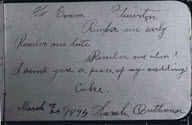 Co Emma Tuierton
Rember me early
Rember me late
Rember me when I
send your a peace of my wedding
Cake.
March 1896 Sarah